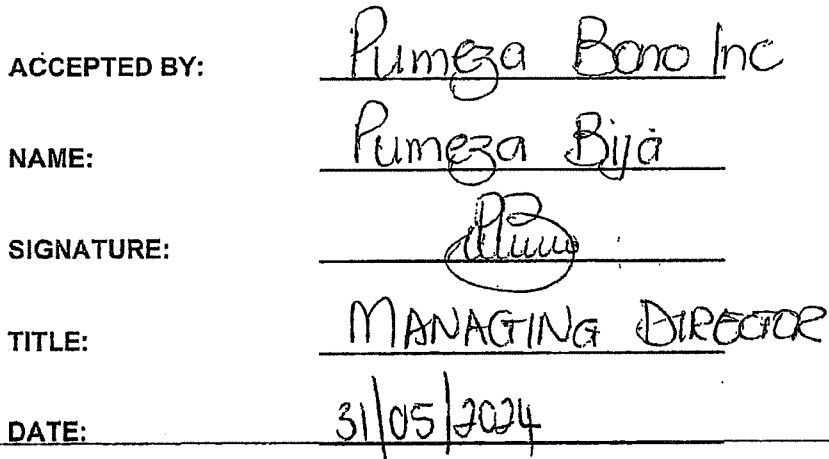 ACCEPTED BY: Pumeza Bono Inc
NAME: Pumeza Bija
SIGNATURE:
TITLE: MANAGING DIRECTOR
DATE: 31/05/2024